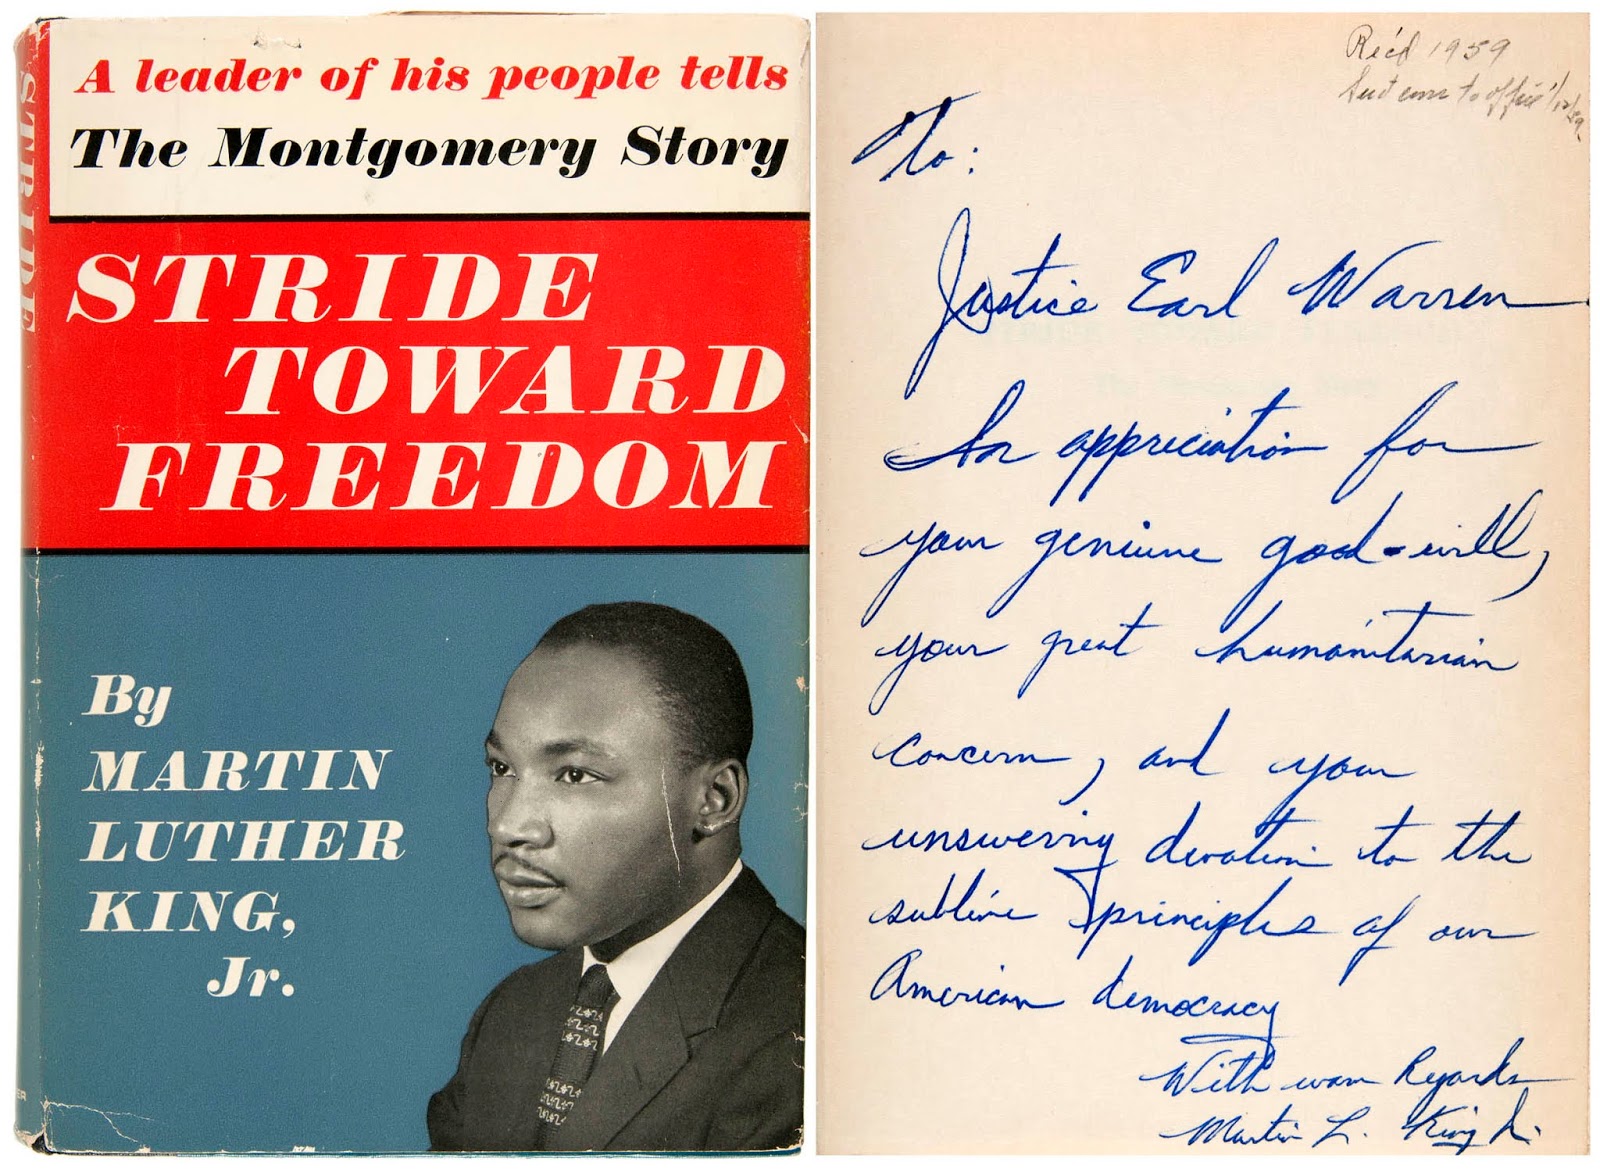 A leader of his people tells
The Montgomery Story
STRIDE
TOWARD
FREEDOM
By
MARTIN
LUTHER
KING,
Jr.
STRIDE
Rec'd 1959
to office
To:
Justice Earl Warren
In appreciation for
your genuine good-will,
your great humanitarian
concern, and your
unswerving devotion to the
sublime principles of our
American democracy
With warm Regards
Martin L. King Jr.